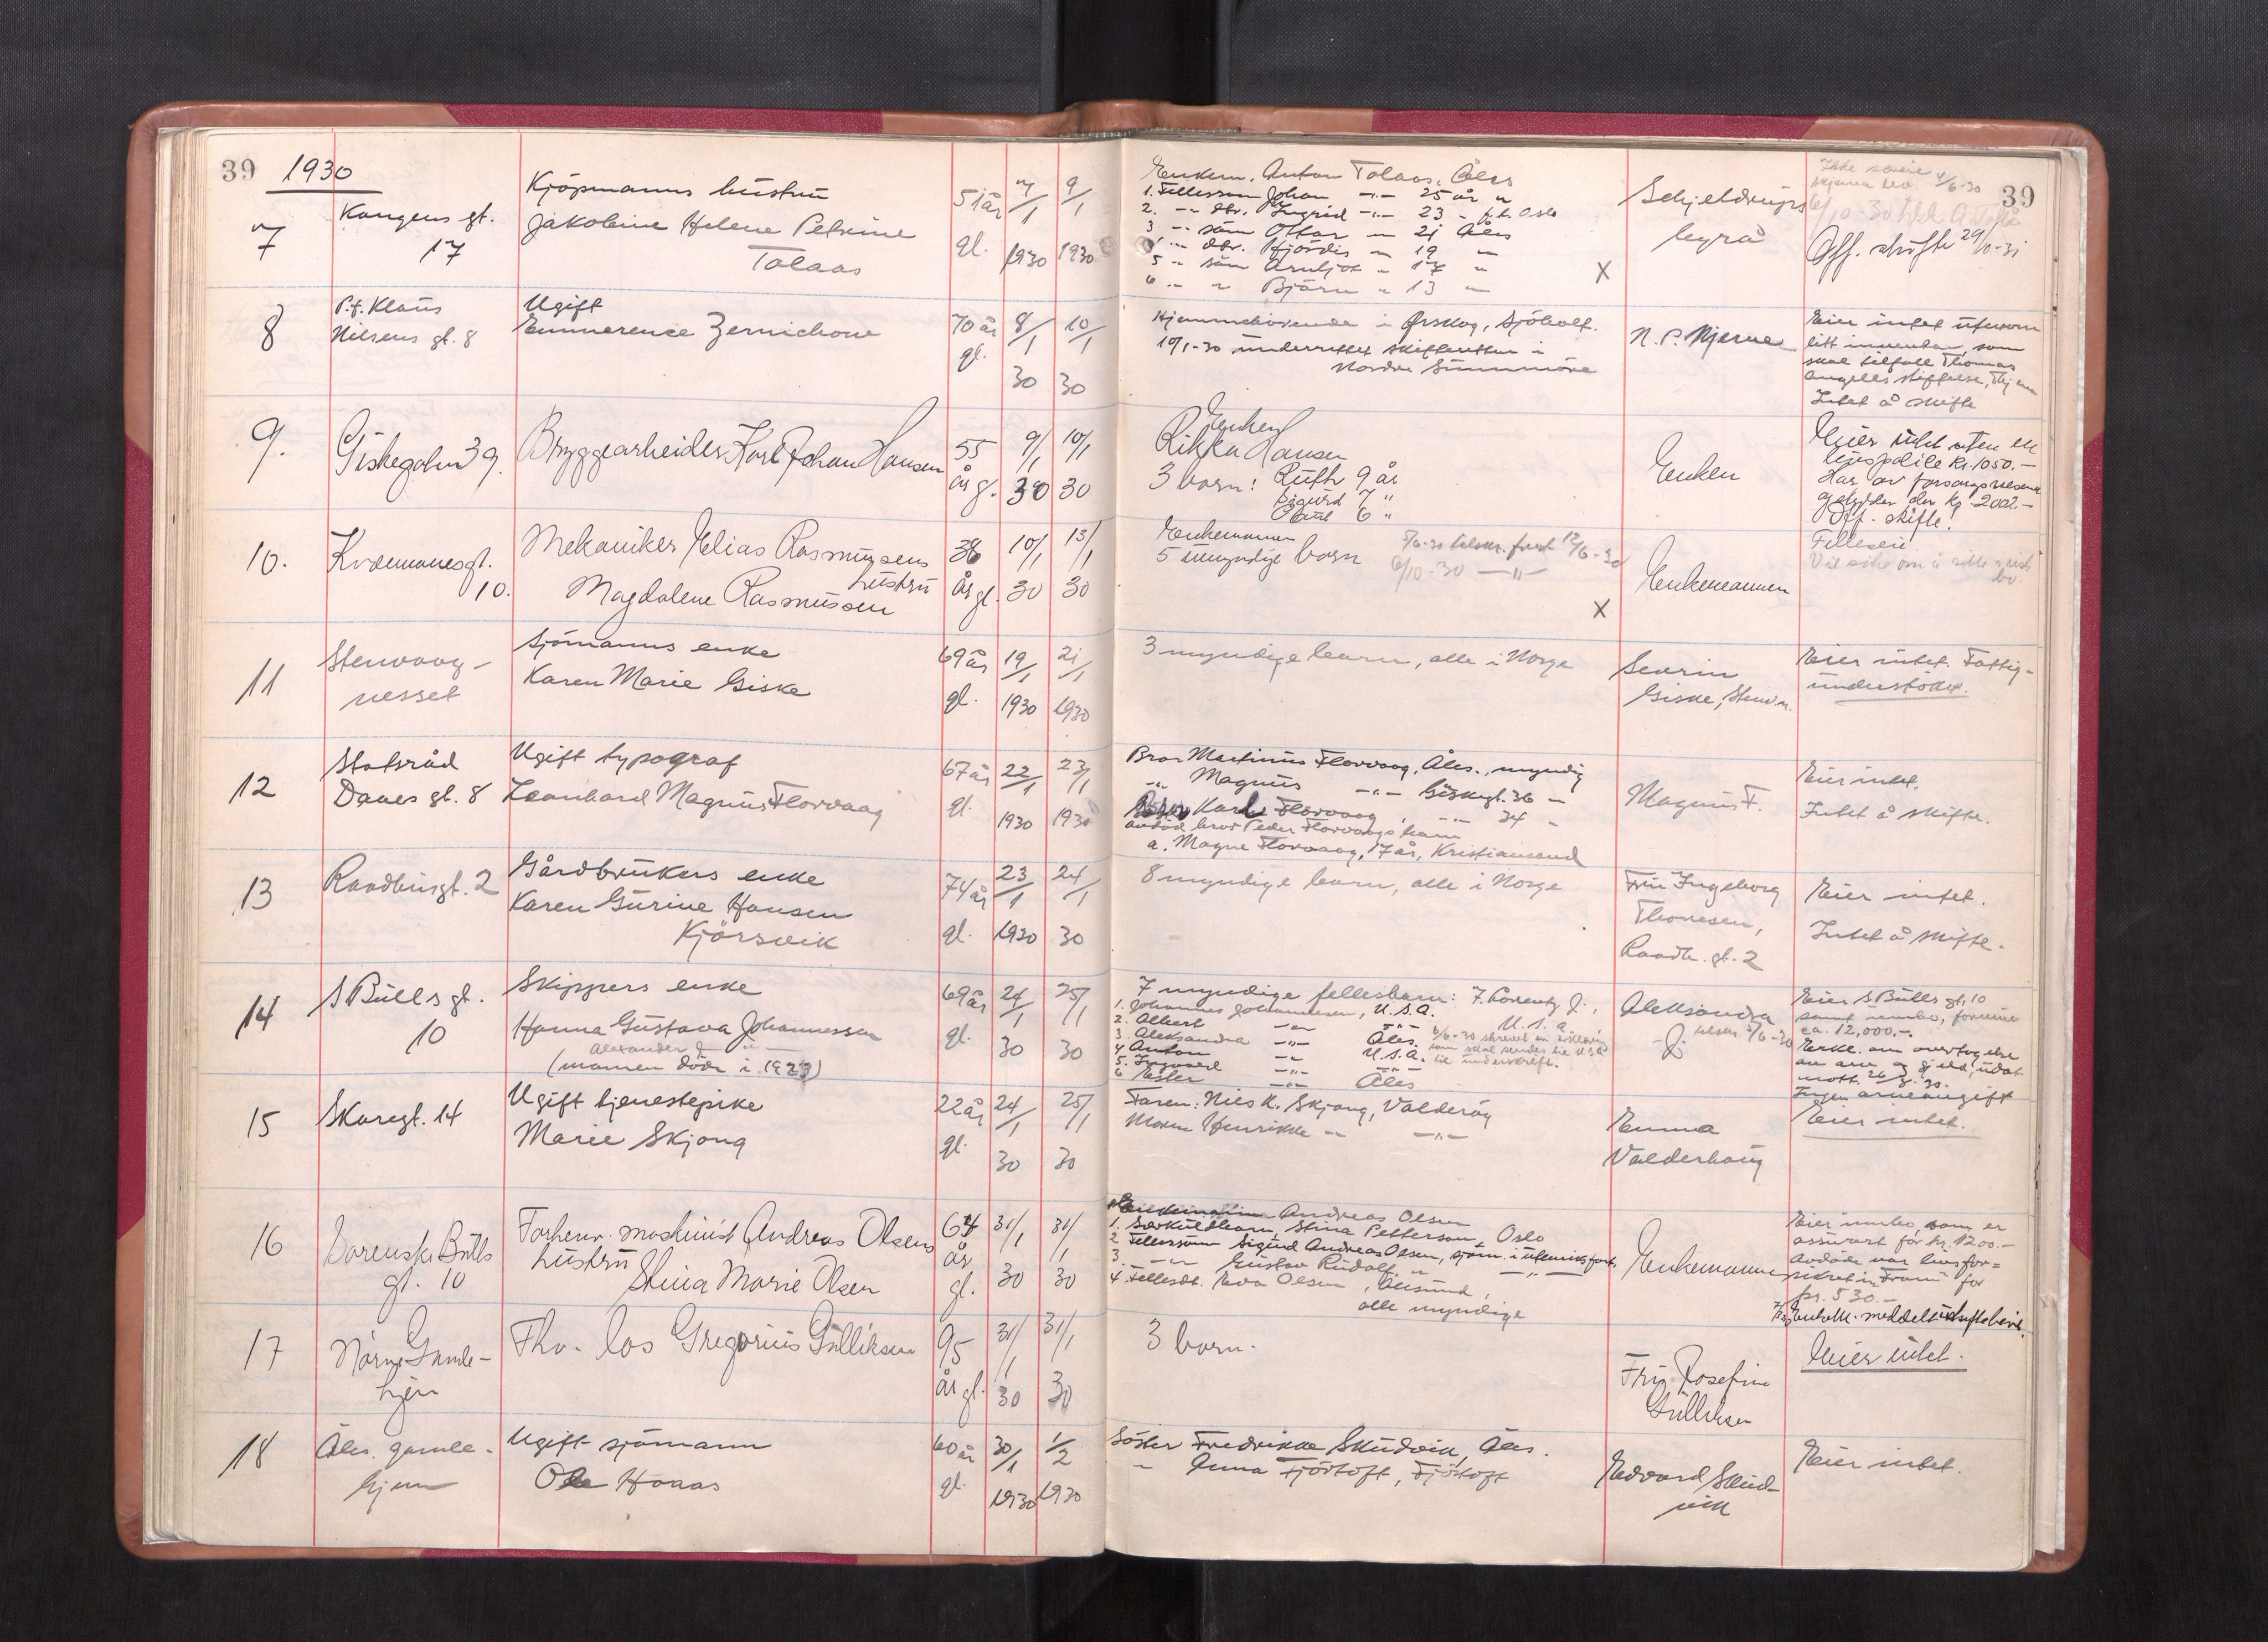 39 1930 39
7
Kongens gt.
17
Kjöpmanns hustru
Jakobine Helene Petrine
Tolaas
51 år
gl.
7/1
1930
9/1
1930
Enkem. Anton Tolaas, Åles
1. Fellessön Johan -"- 25 år "
2. -"- dtr. Ingrid -"- 23 - p.t. Oslo
3 -"- sön Ottar - 21 Åles
4 -"- dtr. Hjördis - 19 "
5 " sön Arnljot " 17 "
6 " " Björn " 13 "
X
Schjeldrups
byrå
4/6-30
Off. skifte 29/10-31
8
P.t. Klaus
Nilsens gt. 8
Ugift
Emmerence Zernichow
70 år
gl.
8/1
30
10/1
30
Hjemmehörende i Ørskog, Sjöholt.
10/1-30 underrettet skifteretten i
Nordre Sunnmöre
N. P. Mjerve
Eier intet uterom
litt innentar, som
skal tilfalle Thomas
Angells stiftelse,
Intet å skifte
9.
Giskegaten 39.
Bryggearbeider Karl Johan Hansen
55
år gl.
9/1
30
10/1
30
Enken
Rikka Hansen
3 barn: Ruth 9 år
Sigurd 7 "
Paul 6 "
Enken
Eier intet uten en
livspolice kr. 1050.-
Har av forsorgsvesenet
kr. 2002.-
Off. skifte!
10.
Kvernmanesgt.
10.
Mekaniker Elias Rasmussens
hustru
Magdalene Rasmussen
36
år gl.
10/1
30
13/1
30
Enkemannen
5 umyndige barn
5/6-30 tilskr. frist 12/6-30
6/10-30 -"-
X
Enkemannen
Felleseie.
Vil söke om å sitte i uskiftet
bo
11
Stenvaag-
nesset
Sjömanns enke
Karen Marie Giske
69 år
gl.
19/1
1930
21/1
1930
3 myndige barn, alle i Norge
Severin
Giske, Stenv.n.
Eier intet. Fattig-
understöttet.
12
Statsråd
Daaes gt. 8
Ugift typograf
Leonhard Magnus Flovvaag
67 år
gl.
22/1
1930
23/1
1930
Bror Martinus Flovvaag, Åles., myndig
-"- Magnus -"- Giskegt. 36 -
Karl Flovvaag, -"- 34 -
avdöd bror Peder Flovvaags barn
a. Magne Flovvaag, 17 år, Kristiansand
Magnus F.
Eier intet.
Intet å skifte.
13
Raadhusgt. 2
Gårdbrukers enke
Karen Gurine Hansen
Kjörsvik
74 år
gl.
23/1
1930
24/1
30
8 myndige barn, alle i Norge
Fru Ingeborg
Thoresen,
Raadh. gt. 2
Eier intet.
Intet å skifte.
14
S Bulls gt.
10
Skippers enke
Hanna Gustava Johannessen
Alexander J -"-
(mannen döde i 1923)
69 år
gl.
24/1
30
25/1
30
7 myndige fellesbarn: 7. Lorentz J.,
1. Johannes Johannessen, U.S.A. U.S.A.
2. Albert -"- -"-
3. Aleksandra -"- Åles. 6/6-30 skrevet en erklæring
4 Anton -"- U.S.A. som skal sendes til USA
5. Ingvard -"- -"- til underskrift.
6 Ester -"- Åles
Aleksandra
J.
tilskr. 5/6-30
Eier S. Bulls gt. 10
samt innbo, formue
ca. 12,000.-
Erkl. om overtagelse
av arv og gjeld, udat.
mott. 26/8.30.
Ingen arveavgift
15
Skaregt. 14
Ugift tjenestepike
Marie Skjong
22 år
gl.
24/1
30
25/1
30
Faren: Nils K. Skjong, Valderöy
Moren Henrikke -"- -"-
Emma
Valderhaug
Eier intet.
16
Sorensk. Bulls
gt. 10
Forhenv. maskinist Andreas Olsens
hustru
Stina Marie Olsen
64
år
gl.
31/1
30
31/1
30
Enkemannen Andreas Olsen
1. Særkuldbarn Stina Petterson, Oslo
2 Fellessönn Sigurd Andreas Olsen, sjöm. i utenriksfart.
3. -"- Gustav Rudolf " -"-
4. Fellesdt. Eva Olsen, Ålesund,
alle myndige
Enkemannen
Eier innbo, som er
assurert for kr. 1200.-
Avdöde var livsfor=
sikret i "Fram" for
kr. 530.-
Enkem. meddelt uskiftebevis.
17
Nörve Gamle-
hjem
Fhv. los Gregorius Gulliksen
95
år gl.
31/1
30
31/1
30
3 barn.
Frk. Josefine
Gulliksen
Eier intet.
18
Åles. gamle-
hjem
Ugift sjömann
Ole Haaas
60 år
gl.
30/1
1930
1/2
1930
Söster Fredrikke Skudvik, Åles.
" Anna Fjörtoft, Fjörtoft
Edvard Skud-
vik
Eier intet.